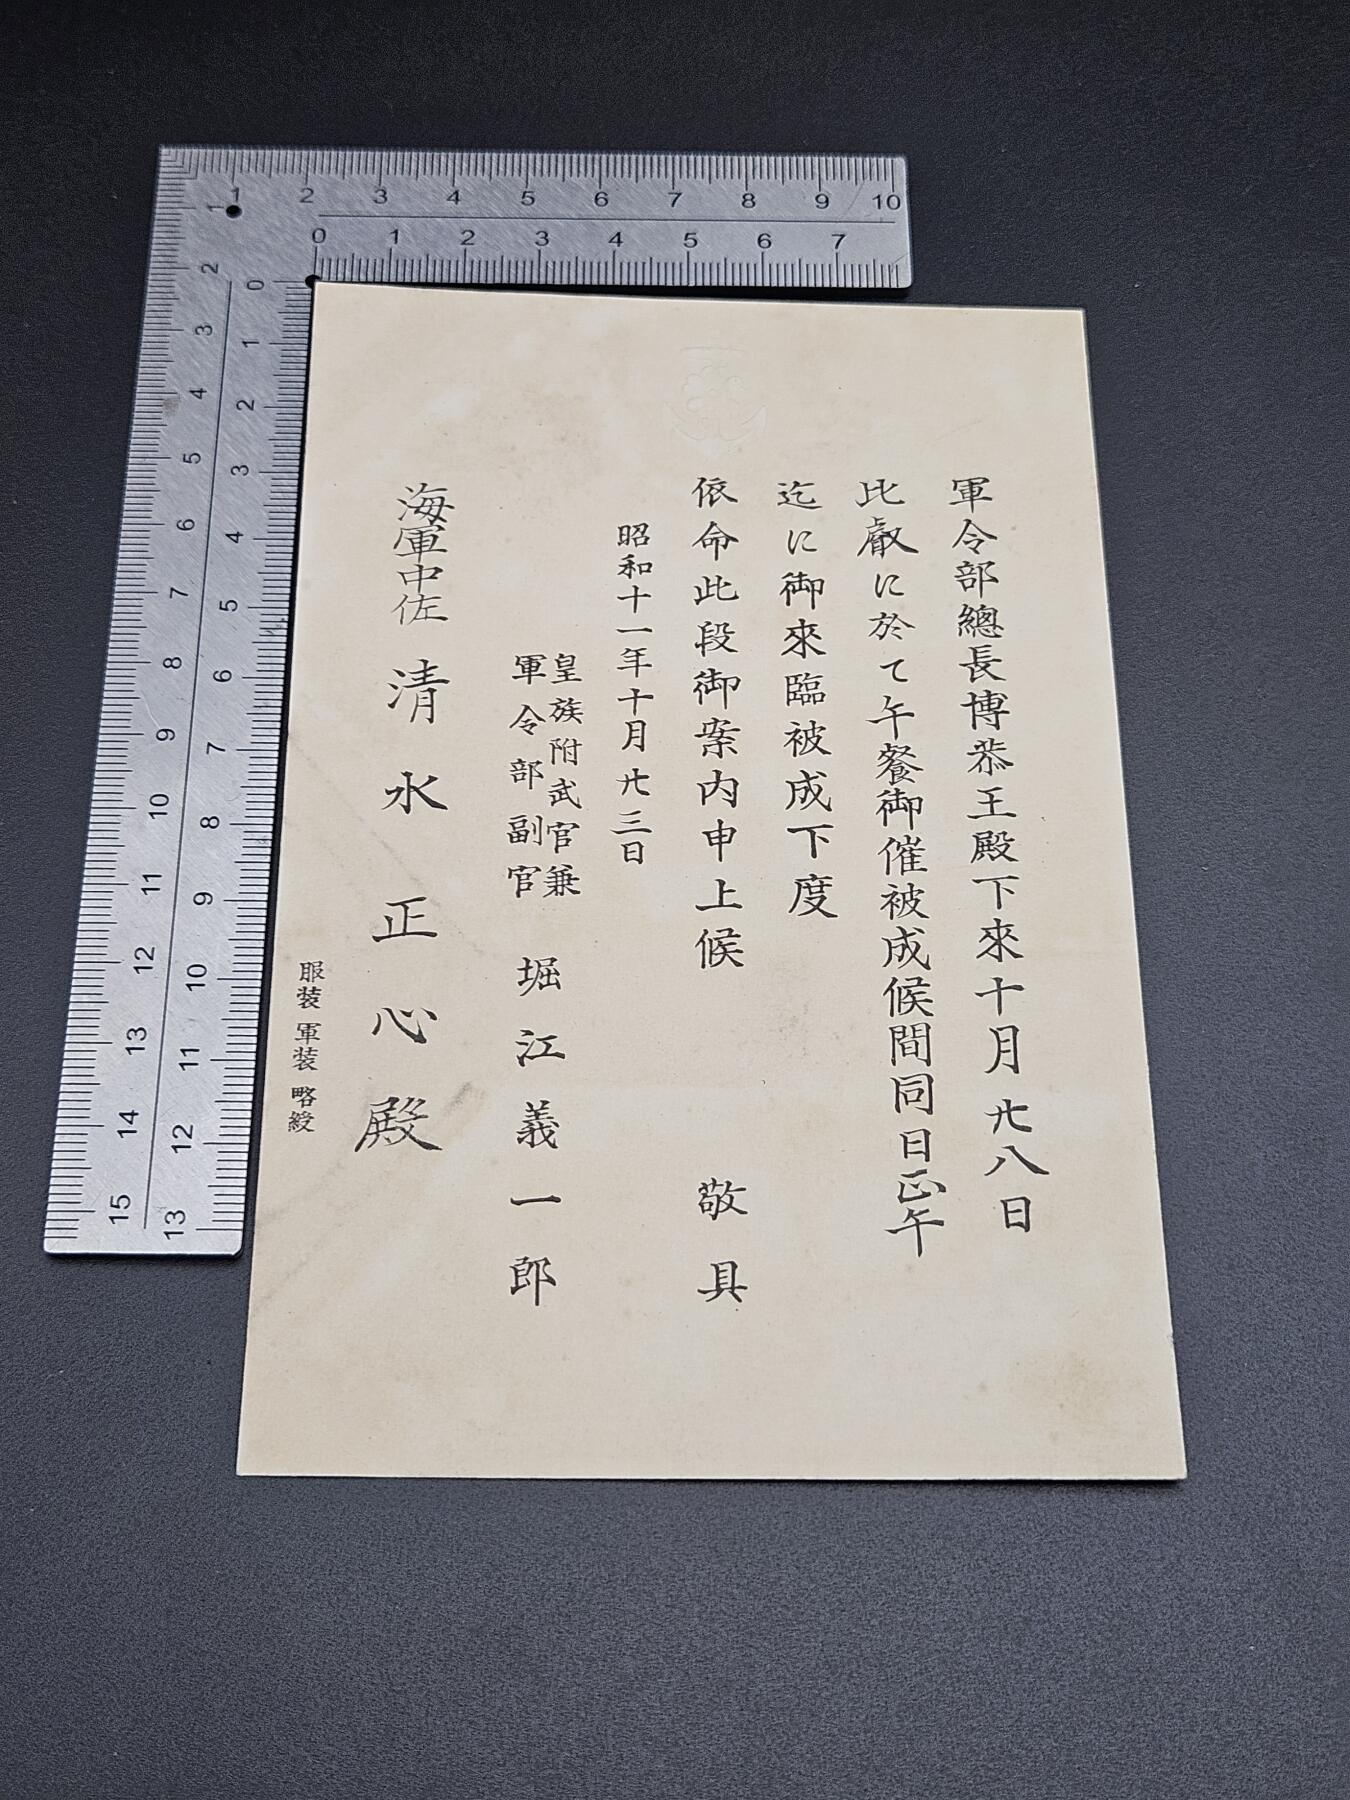 軍令部總長博恭王殿下來十月廿八日
比叡に於て午餐御催被成候間同日正午
迄に御來臨被成下度
依命此段御案内申上候
敬具
昭和十一年十月廿三日
皇族附武官兼
軍令部副官
堀江義一郎
海軍中佐 清水正心殿
服装 軍装 略綬
1 2 3 4 5 6 7 8 9 10
0 1 2 3 4 5 6 7
1 2 3 4 5 6 7 8 9 10 11 12 13 14 15
0 1 2 3 4 5 6 7 8 9 10 11 12 13